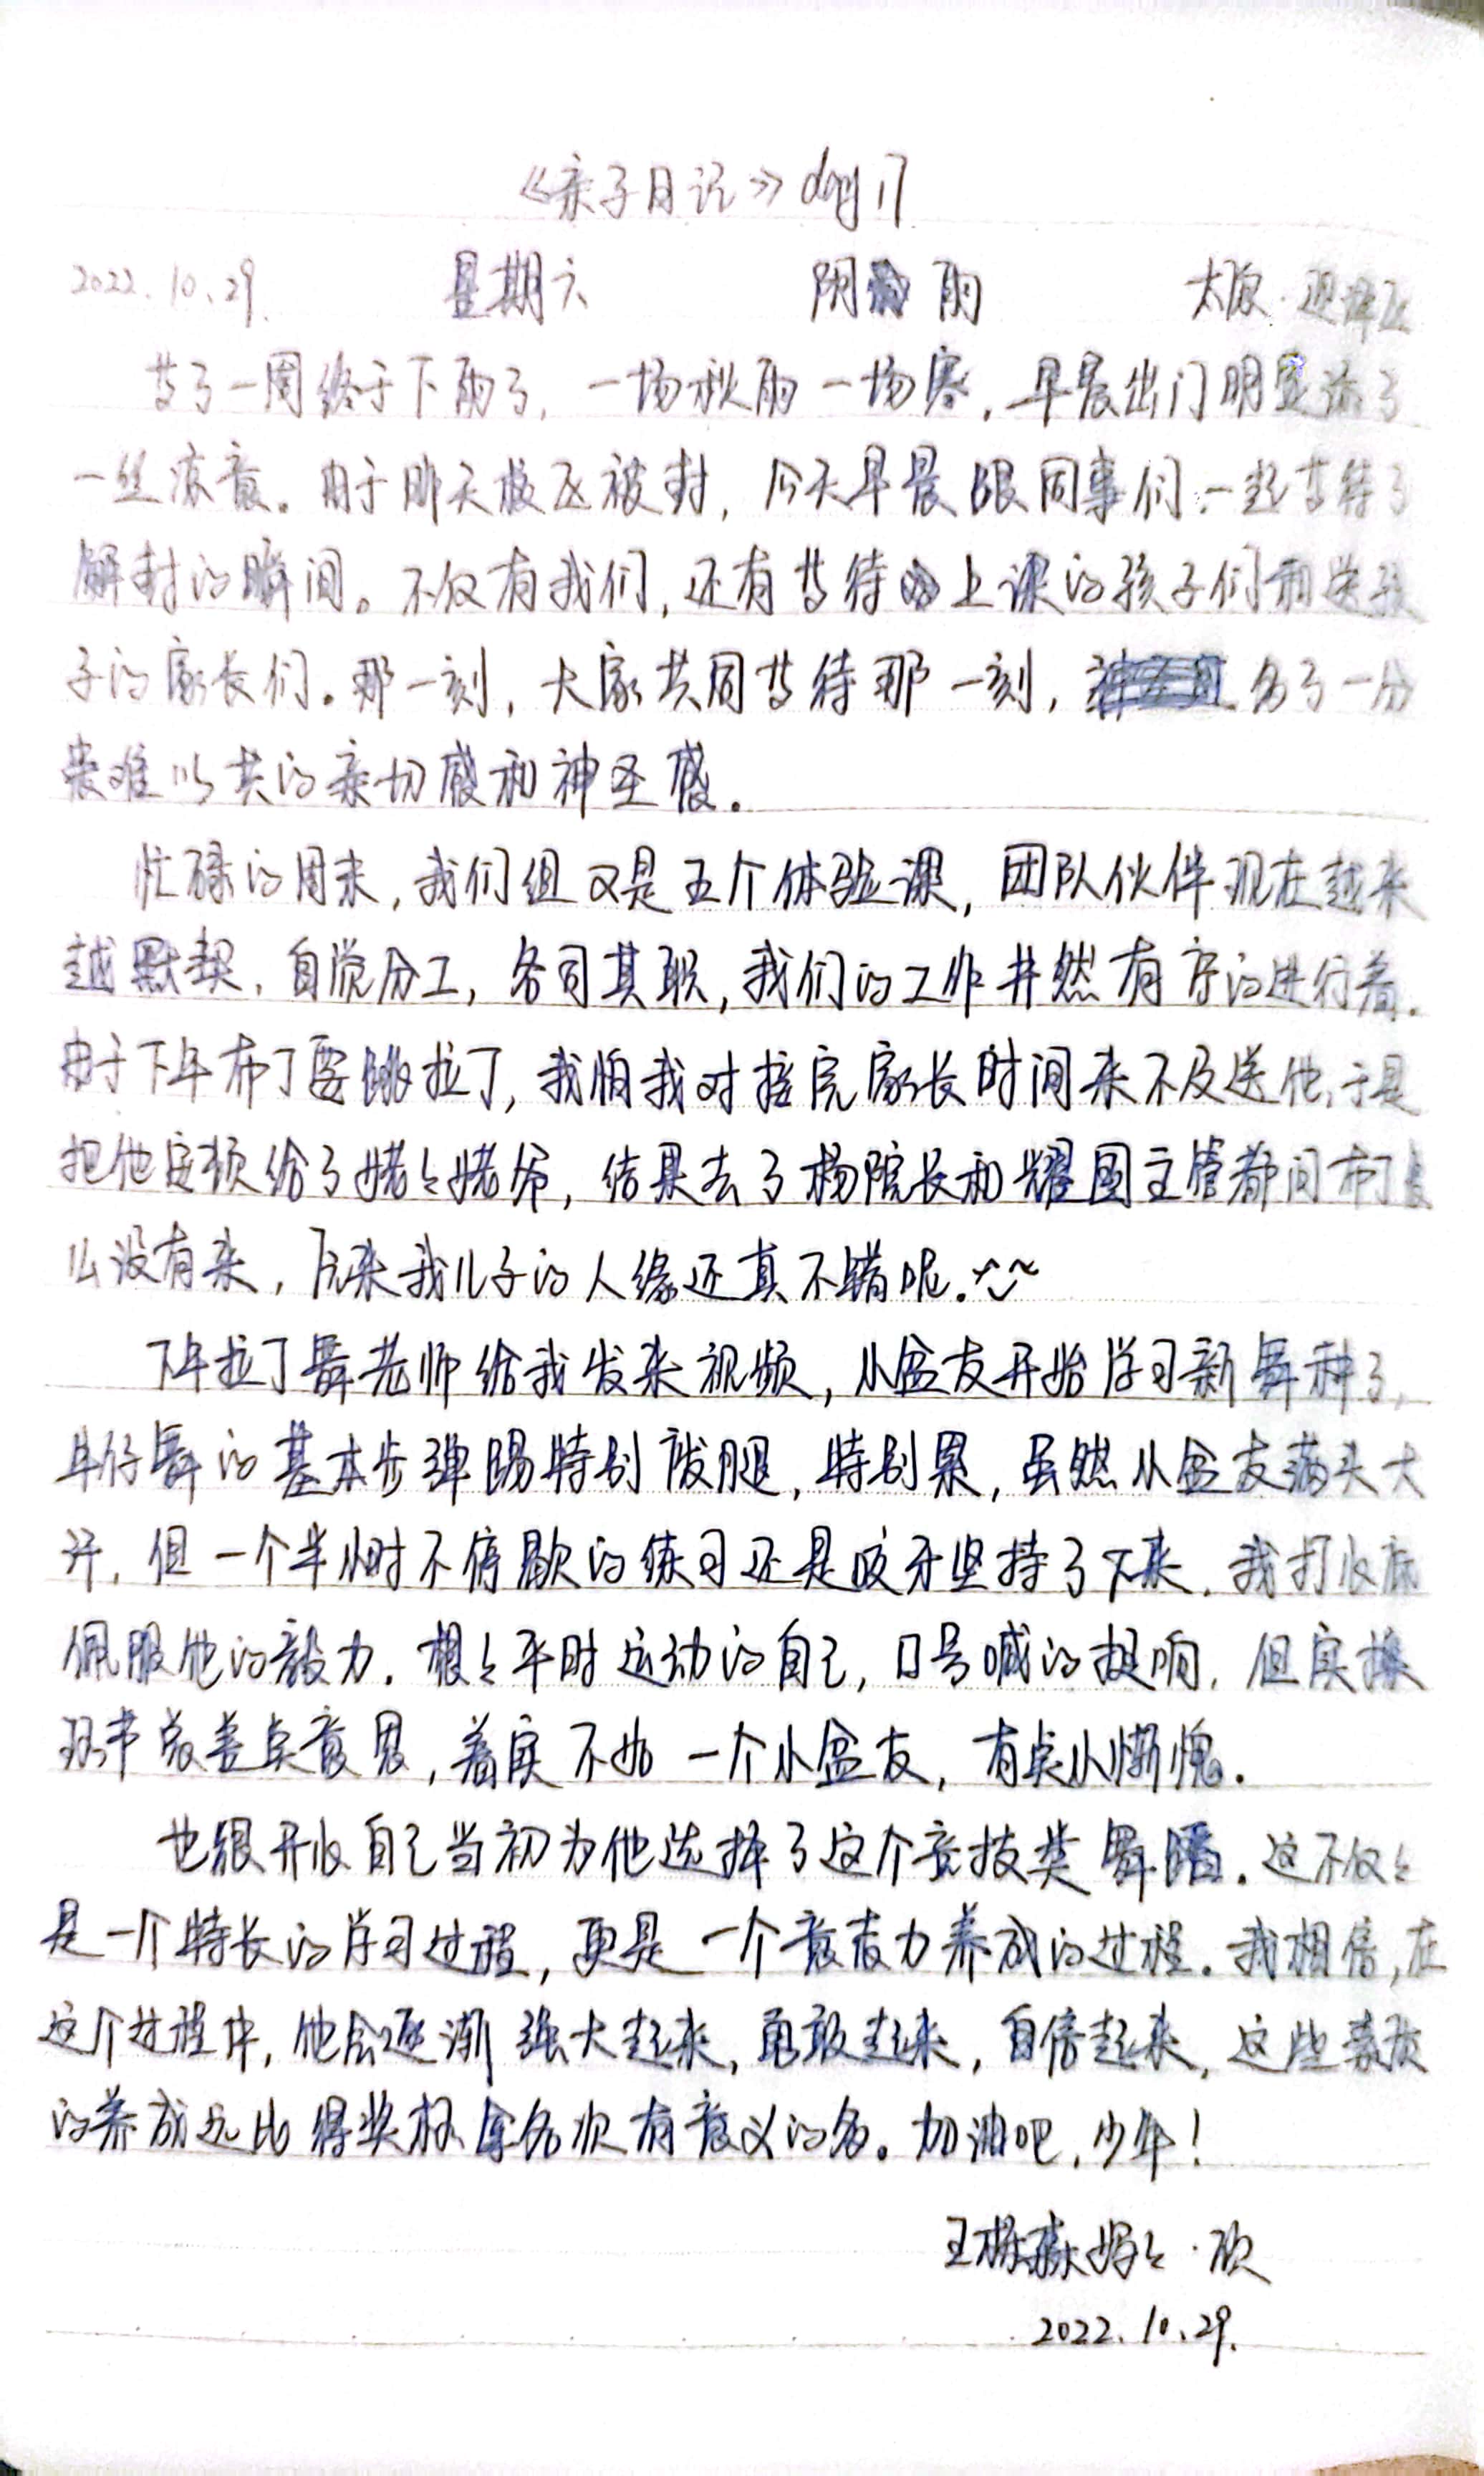 《亲子日记》day 17
2022.10.29. 星期六 阴 雨 太原·迎泽区
等了一周终于下雨了，一场秋雨一场寒，早晨出门明显添了
一丝凉意。由于昨天校区被封，今天早晨跟同事们一起等待了
解封的瞬间。不仅有我们，还有等待上课的孩子们和送孩
子的家长们。那一刻，大家共同等待那一刻，多了一分
患难以共的亲切感和神圣感。
忙碌的周末，我们组又是五个体验课，团队伙伴现在越来
越默契，自觉分工，各司其职，我们的工作井然有序的进行着。
由于下午布丁要跳拉丁，我怕我对接完家长时间来不及送他，于是
把他安顿给了姥々姥爷，结果去了杨院长和耀图主管都问布丁怎
么没有来，原来我儿子的人缘还真不错呢。^~^
下午拉丁舞老师给我发来视频，小盆友开始学习新舞种了，
牛仔舞的基本步弹踢特别废腿，特别累，虽然小盆友满头大
汗，但一个半小时不停歇的练习还是咬牙坚持了下来。我打心底
佩服他的毅力。想々平时运动的自己，口号喊的挺响，但实操
环节总差点意思，着实不如一个小盆友，有点小惭愧。
也很开心自己当初为他选择了这个竞技类舞蹈。这不仅々
是一个特长的学习过程，更是一个意志力养成的过程。我相信，在
这个过程中，他会逐渐强大起来，勇敢起来，自信起来，这些素质
的养成远比得奖杯拿名次有意义的多。加油吧，少年！
王栎森妈々·欣
2022.10.29.